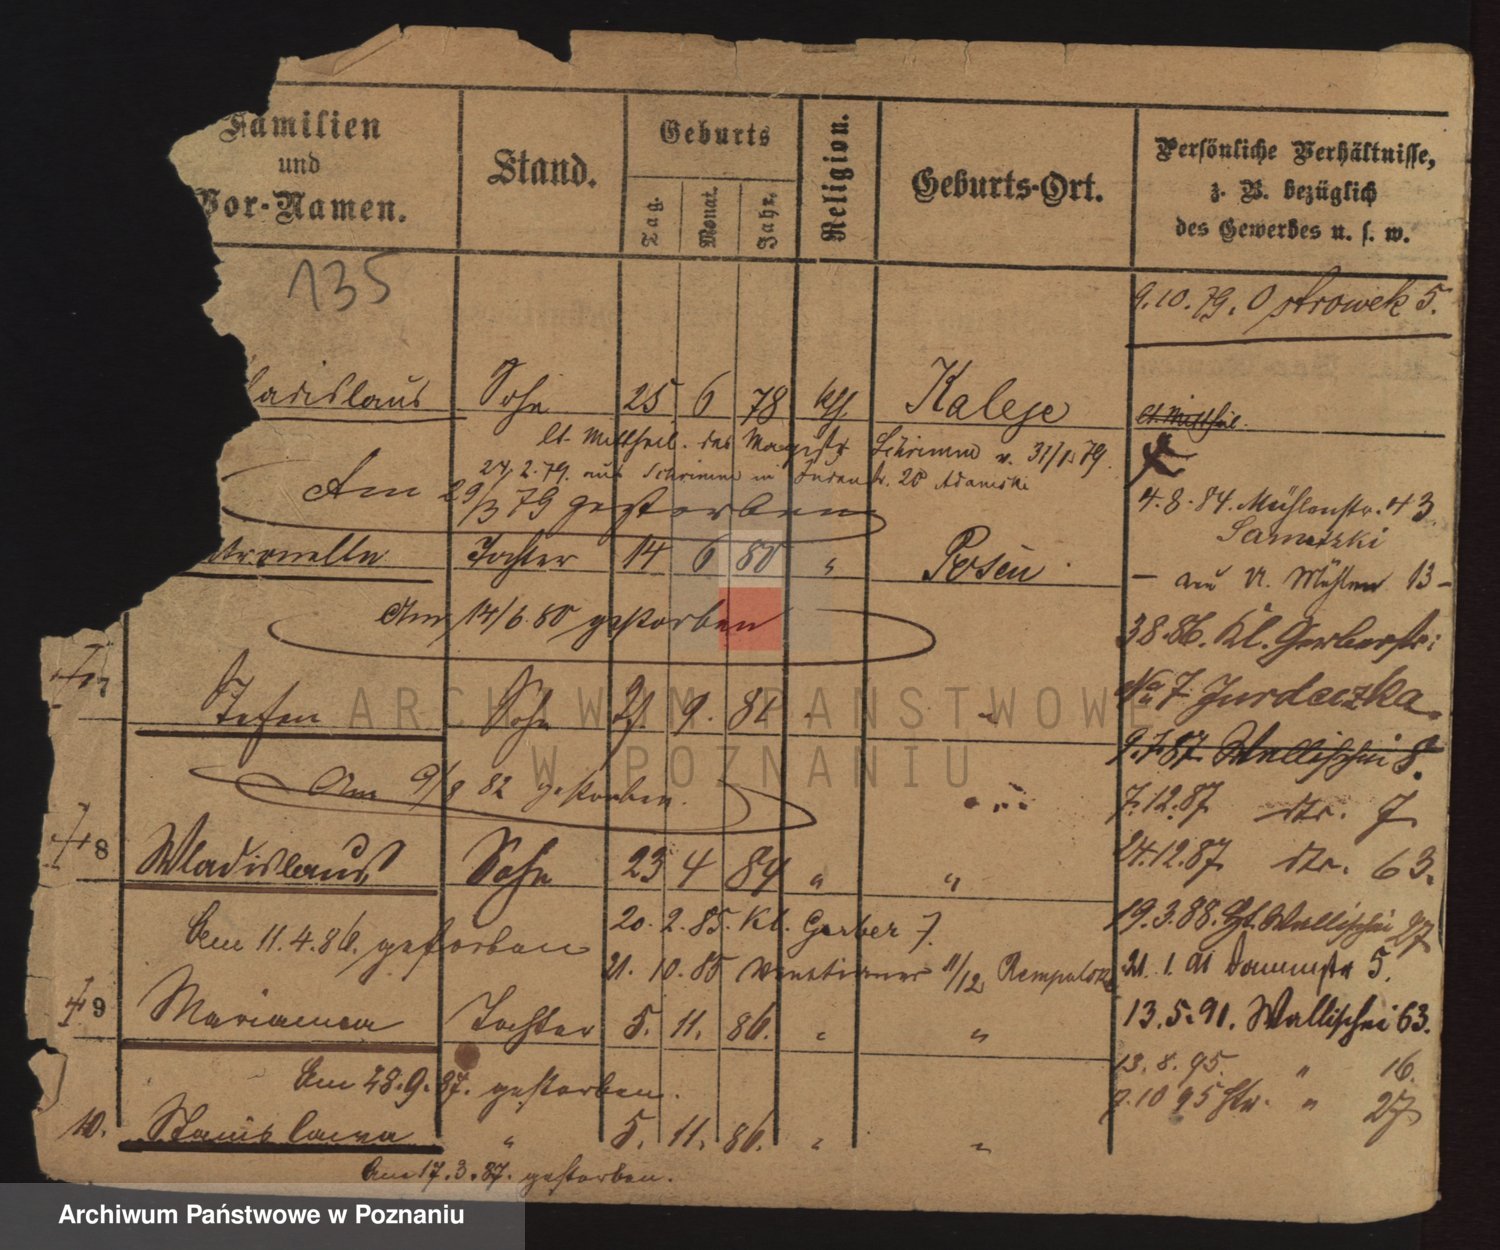 Familien
und
Vor-Namen.
Stand.
Geburts
Tag.
Monat.
Jahr.
Religion.
Geburts-Ort.
Persönliche Verhältnisse,
z. B. bezüglich
des Gewerbes u. s. w.
135
9.10.79. Ostrowek 5.
ladislaus Sohn 25 6 78 kth. Kaleje
lt. Mittheil.
lt. Mittheil. des Magistr. Schrimm v. 31/1.79.
27.2.79. aus Schrimm in Judenstr. 20 Adamski
Am 29/3 79 gestorben
4.8.84. Mühlenstr. 43
tronella Tochter 14 6 80 " Posen
13
Am 14/6.80 gestorben
38.86. Kl. Gerberstr:
No 7 Jurdeczka
7 Stefan Sohn 9. "
9.7.87 Wallischei 8.
Am 9/9 82 gestorben.
7.12.87 7
8 Wladislaus Sohn 23 4 84 " "
24.12.87 63.
20.2.85. Kl. Gerber 7.
19.3.88. Wallischei 27
Am 11.4.86. gestorben
21.10.85 Venetianer 11/12
21.1.91 Dammstr 5.
9 Marianna Tochter 5. 11. 86. " "
13.5.91. Wallischei 63.
13.8.95. " 16.
Am 28.9.87. gestorben.
9.10 95 " 27
10. Stanislawa " 5. 11. 86. " "
Am 17.3.87. gestorben.
ARCHIWUM PAŃSTWOWE
W POZNANIU
Archiwum Państwowe w Poznaniu